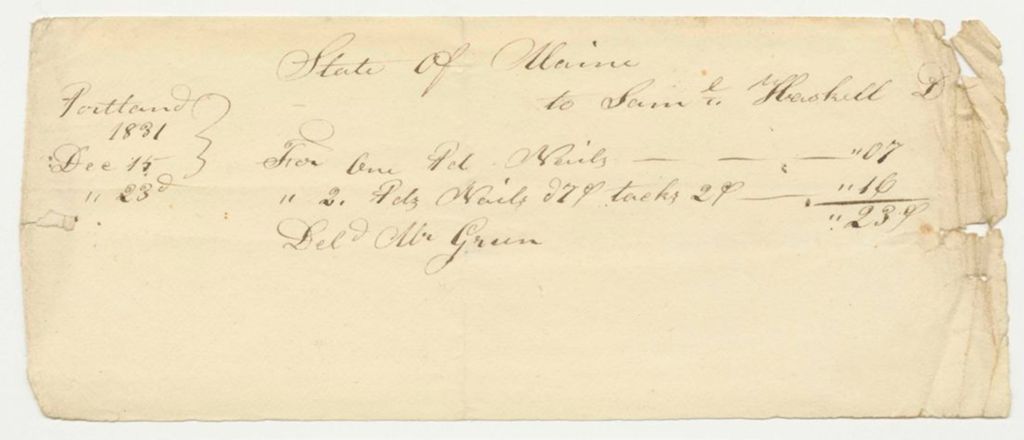 State Of Maine
Portland to Saml. Haskell Dr
1831
Dec 15 For One Pd Nails — — — "07
" 23d " 2. Pds Nails @7¢ tacks 2¢ — "16
"23¢
Deld Mr Green